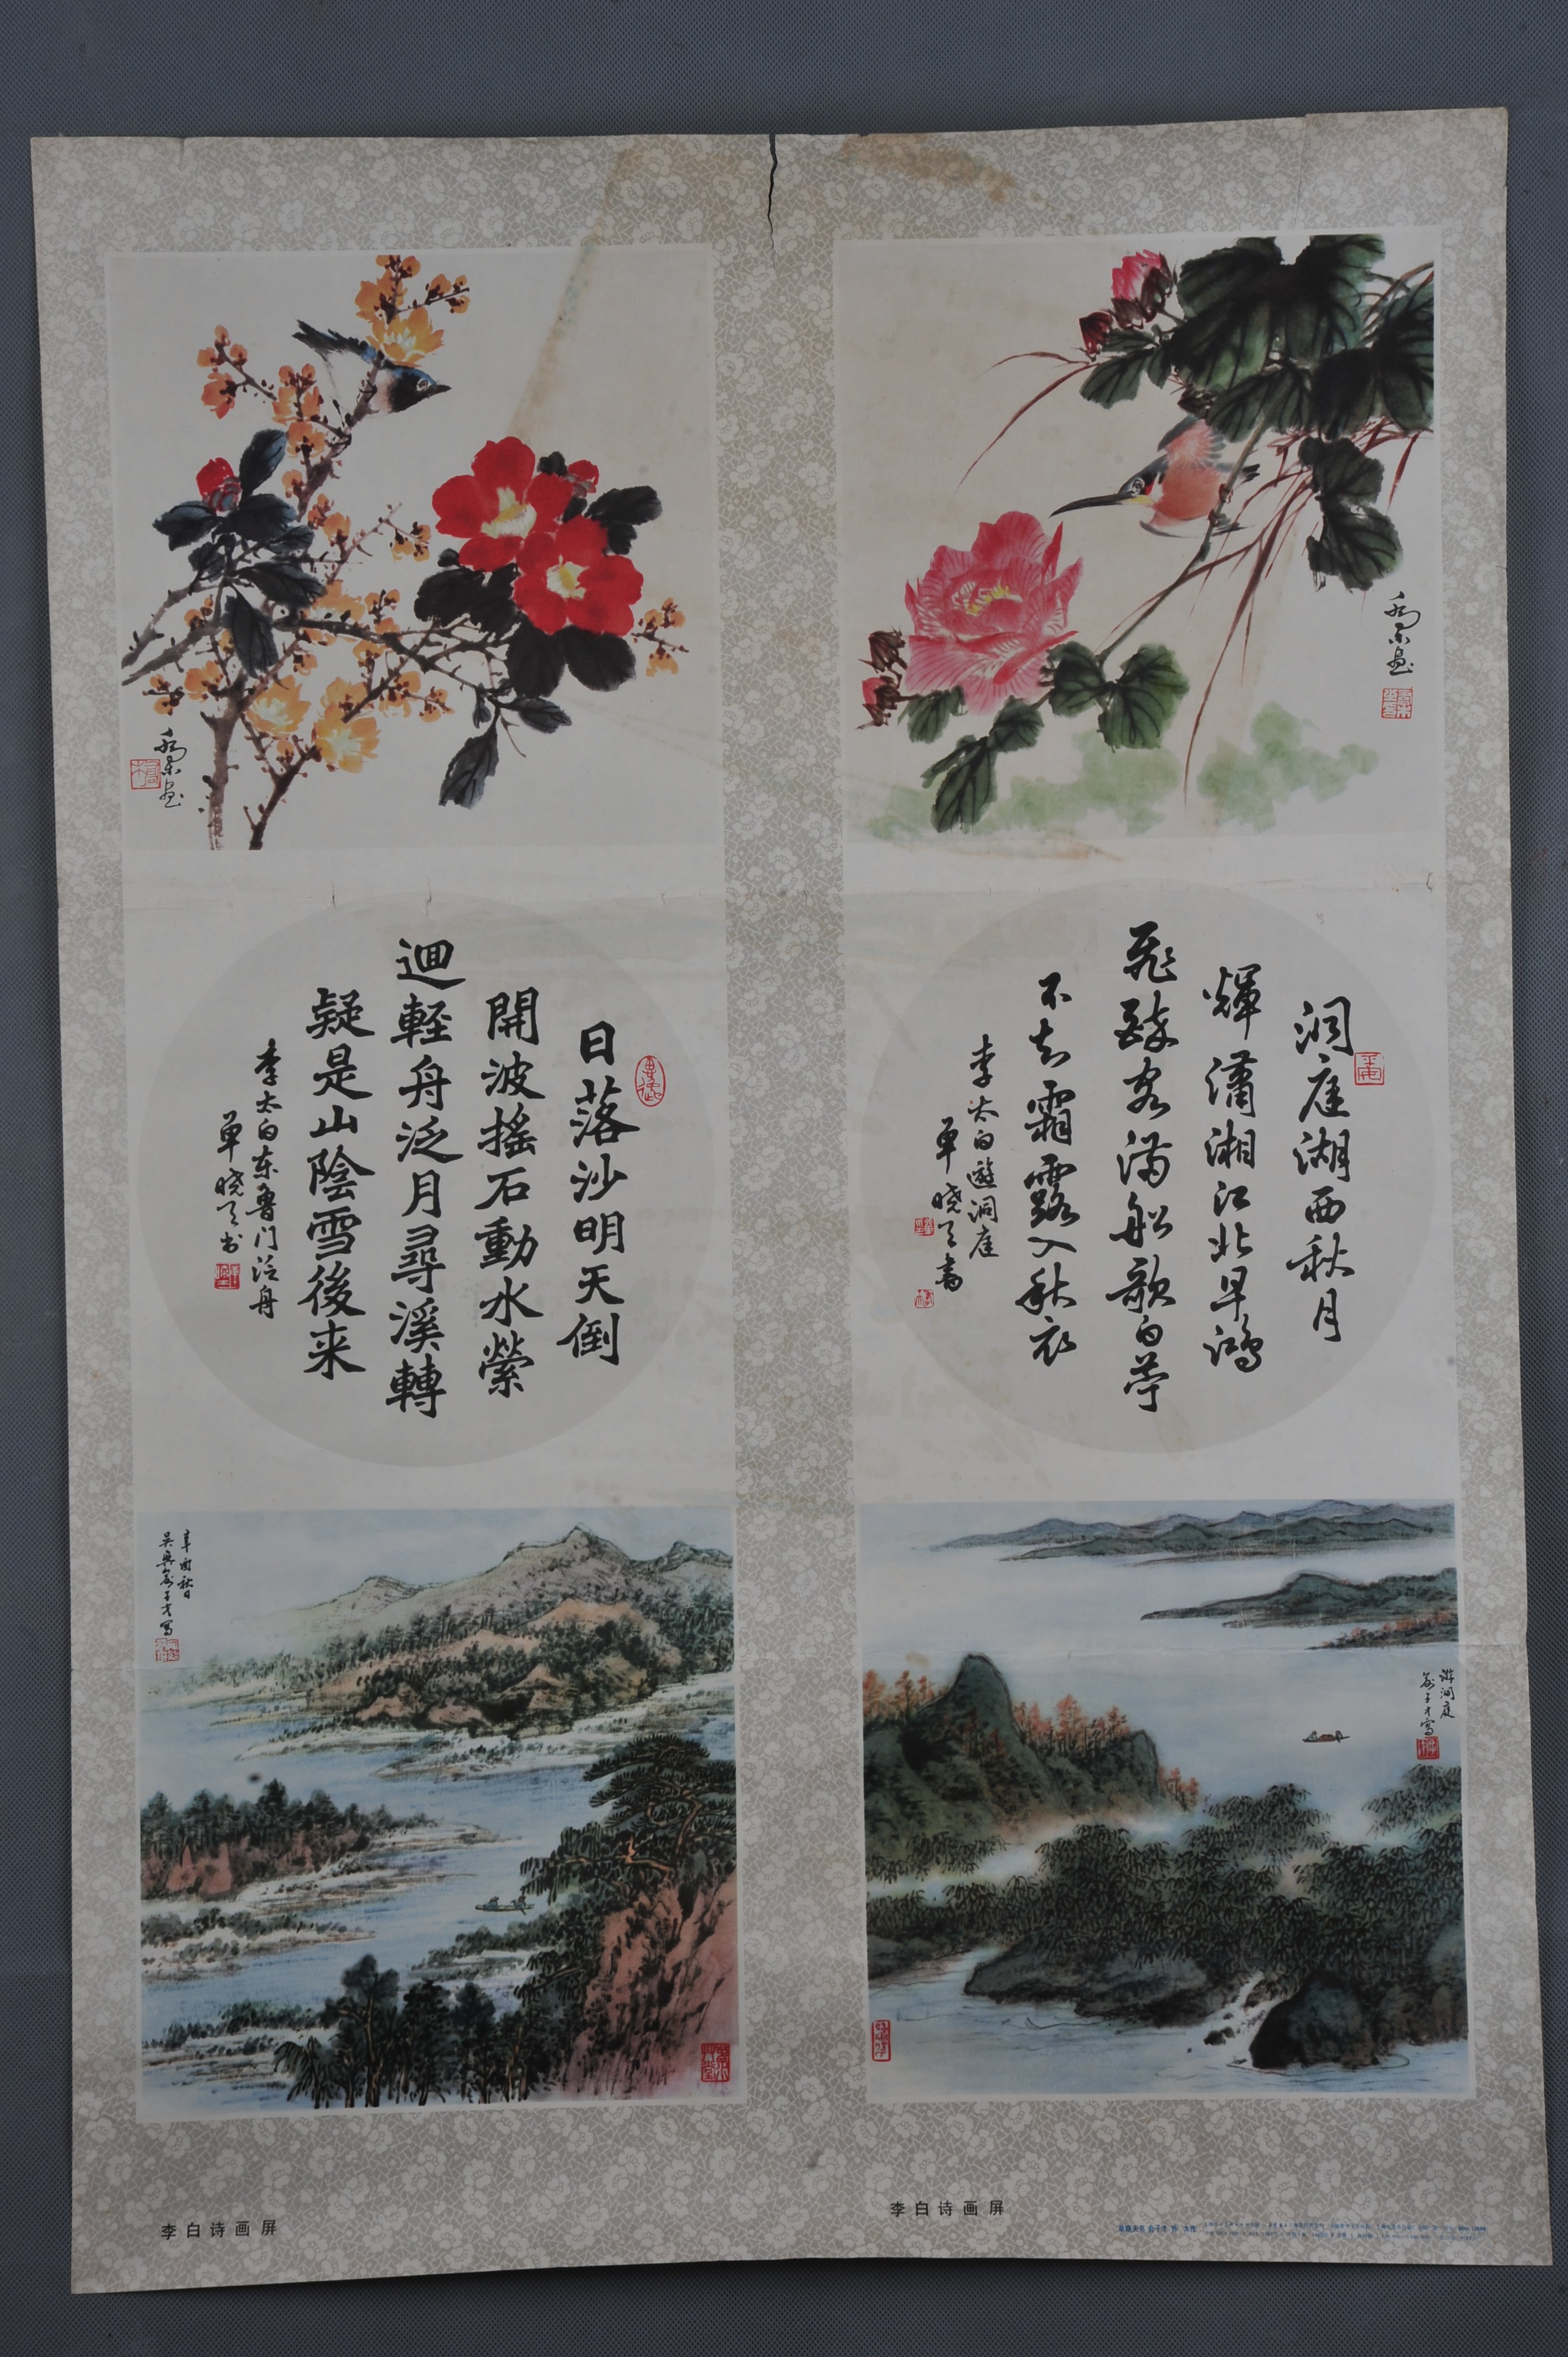 喬木画
洞庭湖西秋月
輝瀟湘江北早鴻
飛醉客满船歌白苧
不知霜露入秋衣
李太白遊洞庭
單晓天書
游洞庭
俞子才寫
李白诗画屏
喬木画
日落沙明天倒
開波搖石動水縈
迴軽舟泛月尋溪轉
疑是山陰雪後来
李太白东鲁门泛舟
單晓天书
辛酉秋日
吴興俞子才写
李白诗画屏